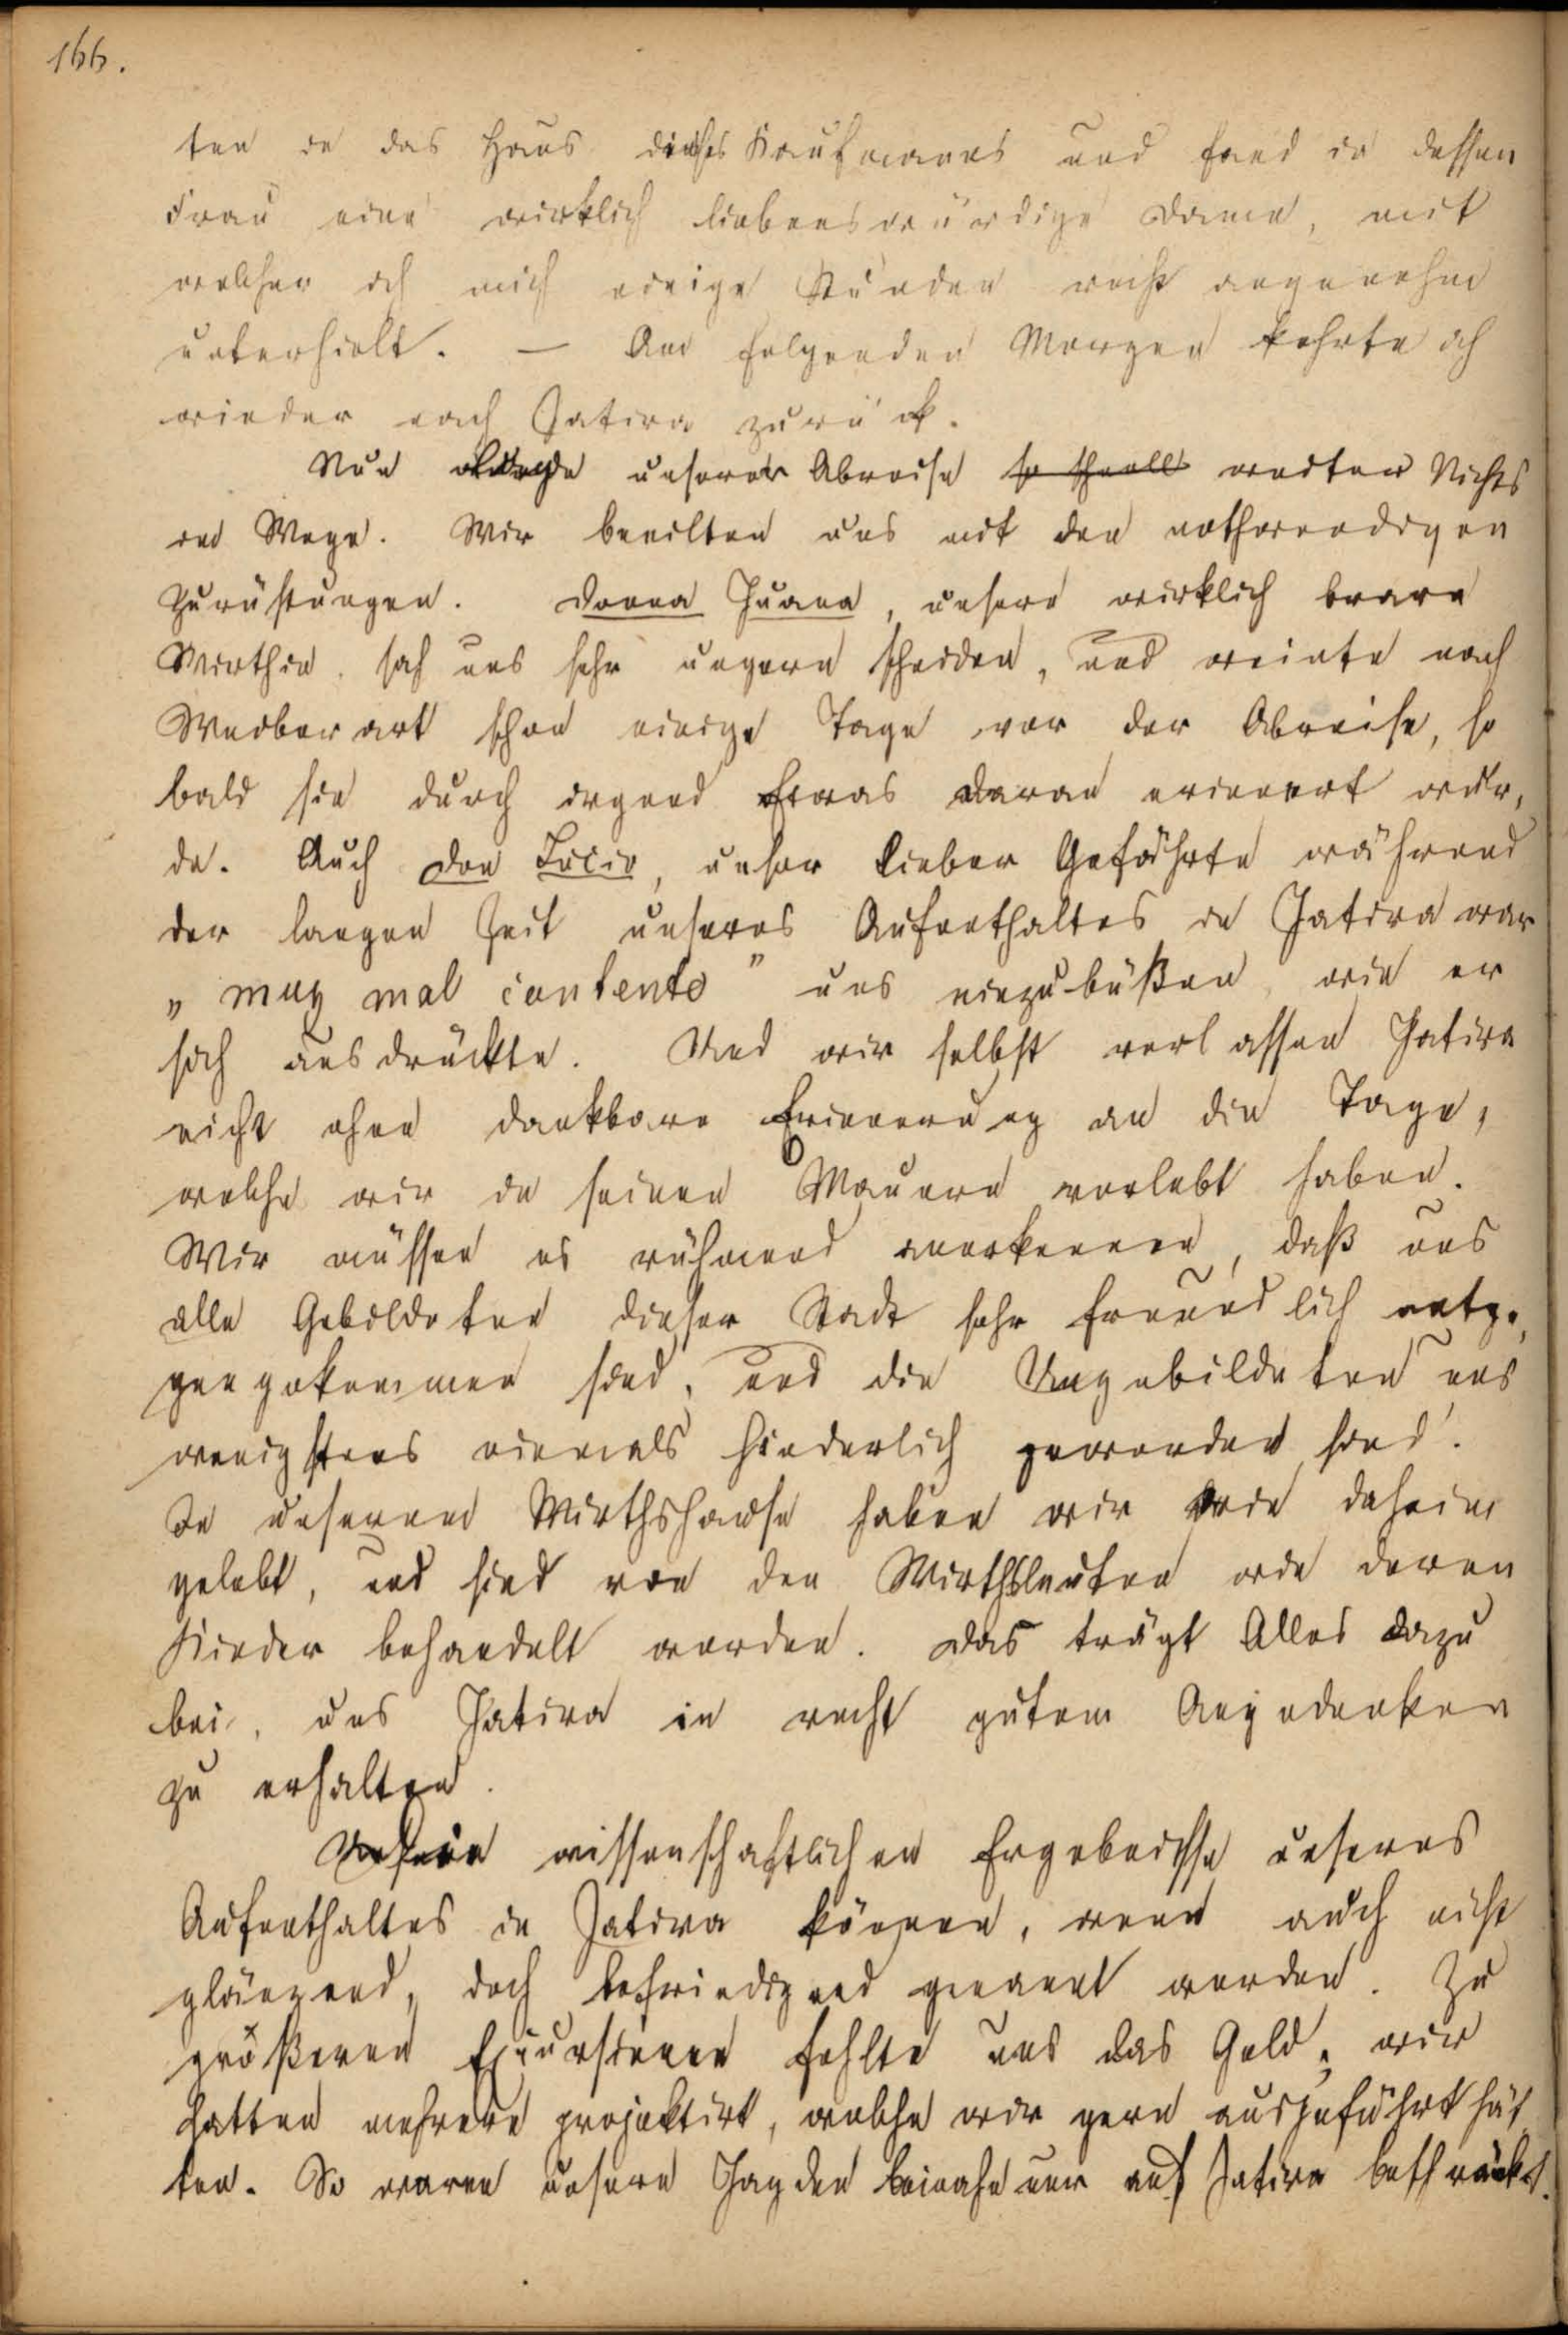 166.
ten in das Haus dieses Kaufmanns und fand in dessen
Frau eine wirklich liebenswürdige Dame, mit
welcher ich mich einige Stunden recht angenehm
unterhielt. — Am folgenden Morgen kehrte ich
wieder nach Jativa zurück.
Nun unserer Abreise so schnell weiter Nichts
im Wege. Wir beeilten uns mit den nothwendigen
Zurüstungen. Donna Juana, unsere wirklich brave
Wirthin, sah uns sehr ungern scheiden, und weinte nach
Weiberart schon einige Tage vor der Abreise, so
bald sie durch irgend Etwas daran erinnert wür,
de. Auch Don Lucio, unser lieber Gefährte während
der langen Zeit unseres Aufenthaltes in Jativa war
„muy mal contento" uns einzubüßen, wie er
sich ausdrückte. Und wir selbst verlassen Jativa
nicht ohne dankbare Erinnerung an die Tage,
welche wir in seinen Mauern verlebt haben.
Wir müssen es rühmend anerkennen, daß uns
alle Gebildeten dieser Stadt sehr freundlich entge,
gengekommen sind, und die Ungebildeten uns
wenigstens niemals hinderlich geworden sind.
In unserem Wirthshause haben wir wie daheim
gelebt, und sind von den Wirthsleuten wie deren
Kinder behandelt worden. Das trägt Alles dazu
bei, uns Jativa in recht gutem Angedenken
zu erhalten.
wissenschaftlichen Ergebnisse unseres
Aufenthaltes in Jativa können, wenn auch nicht
glänzend, doch befriedigend genannt werden. Zu
größeren Excursionen fehlte uns das Geld, wir
hatten mehrere projektirt, welche wir gern ausgeführt hät,
ten. So waren unsere Jagden beinahe nur auf Jativa beschränkt.